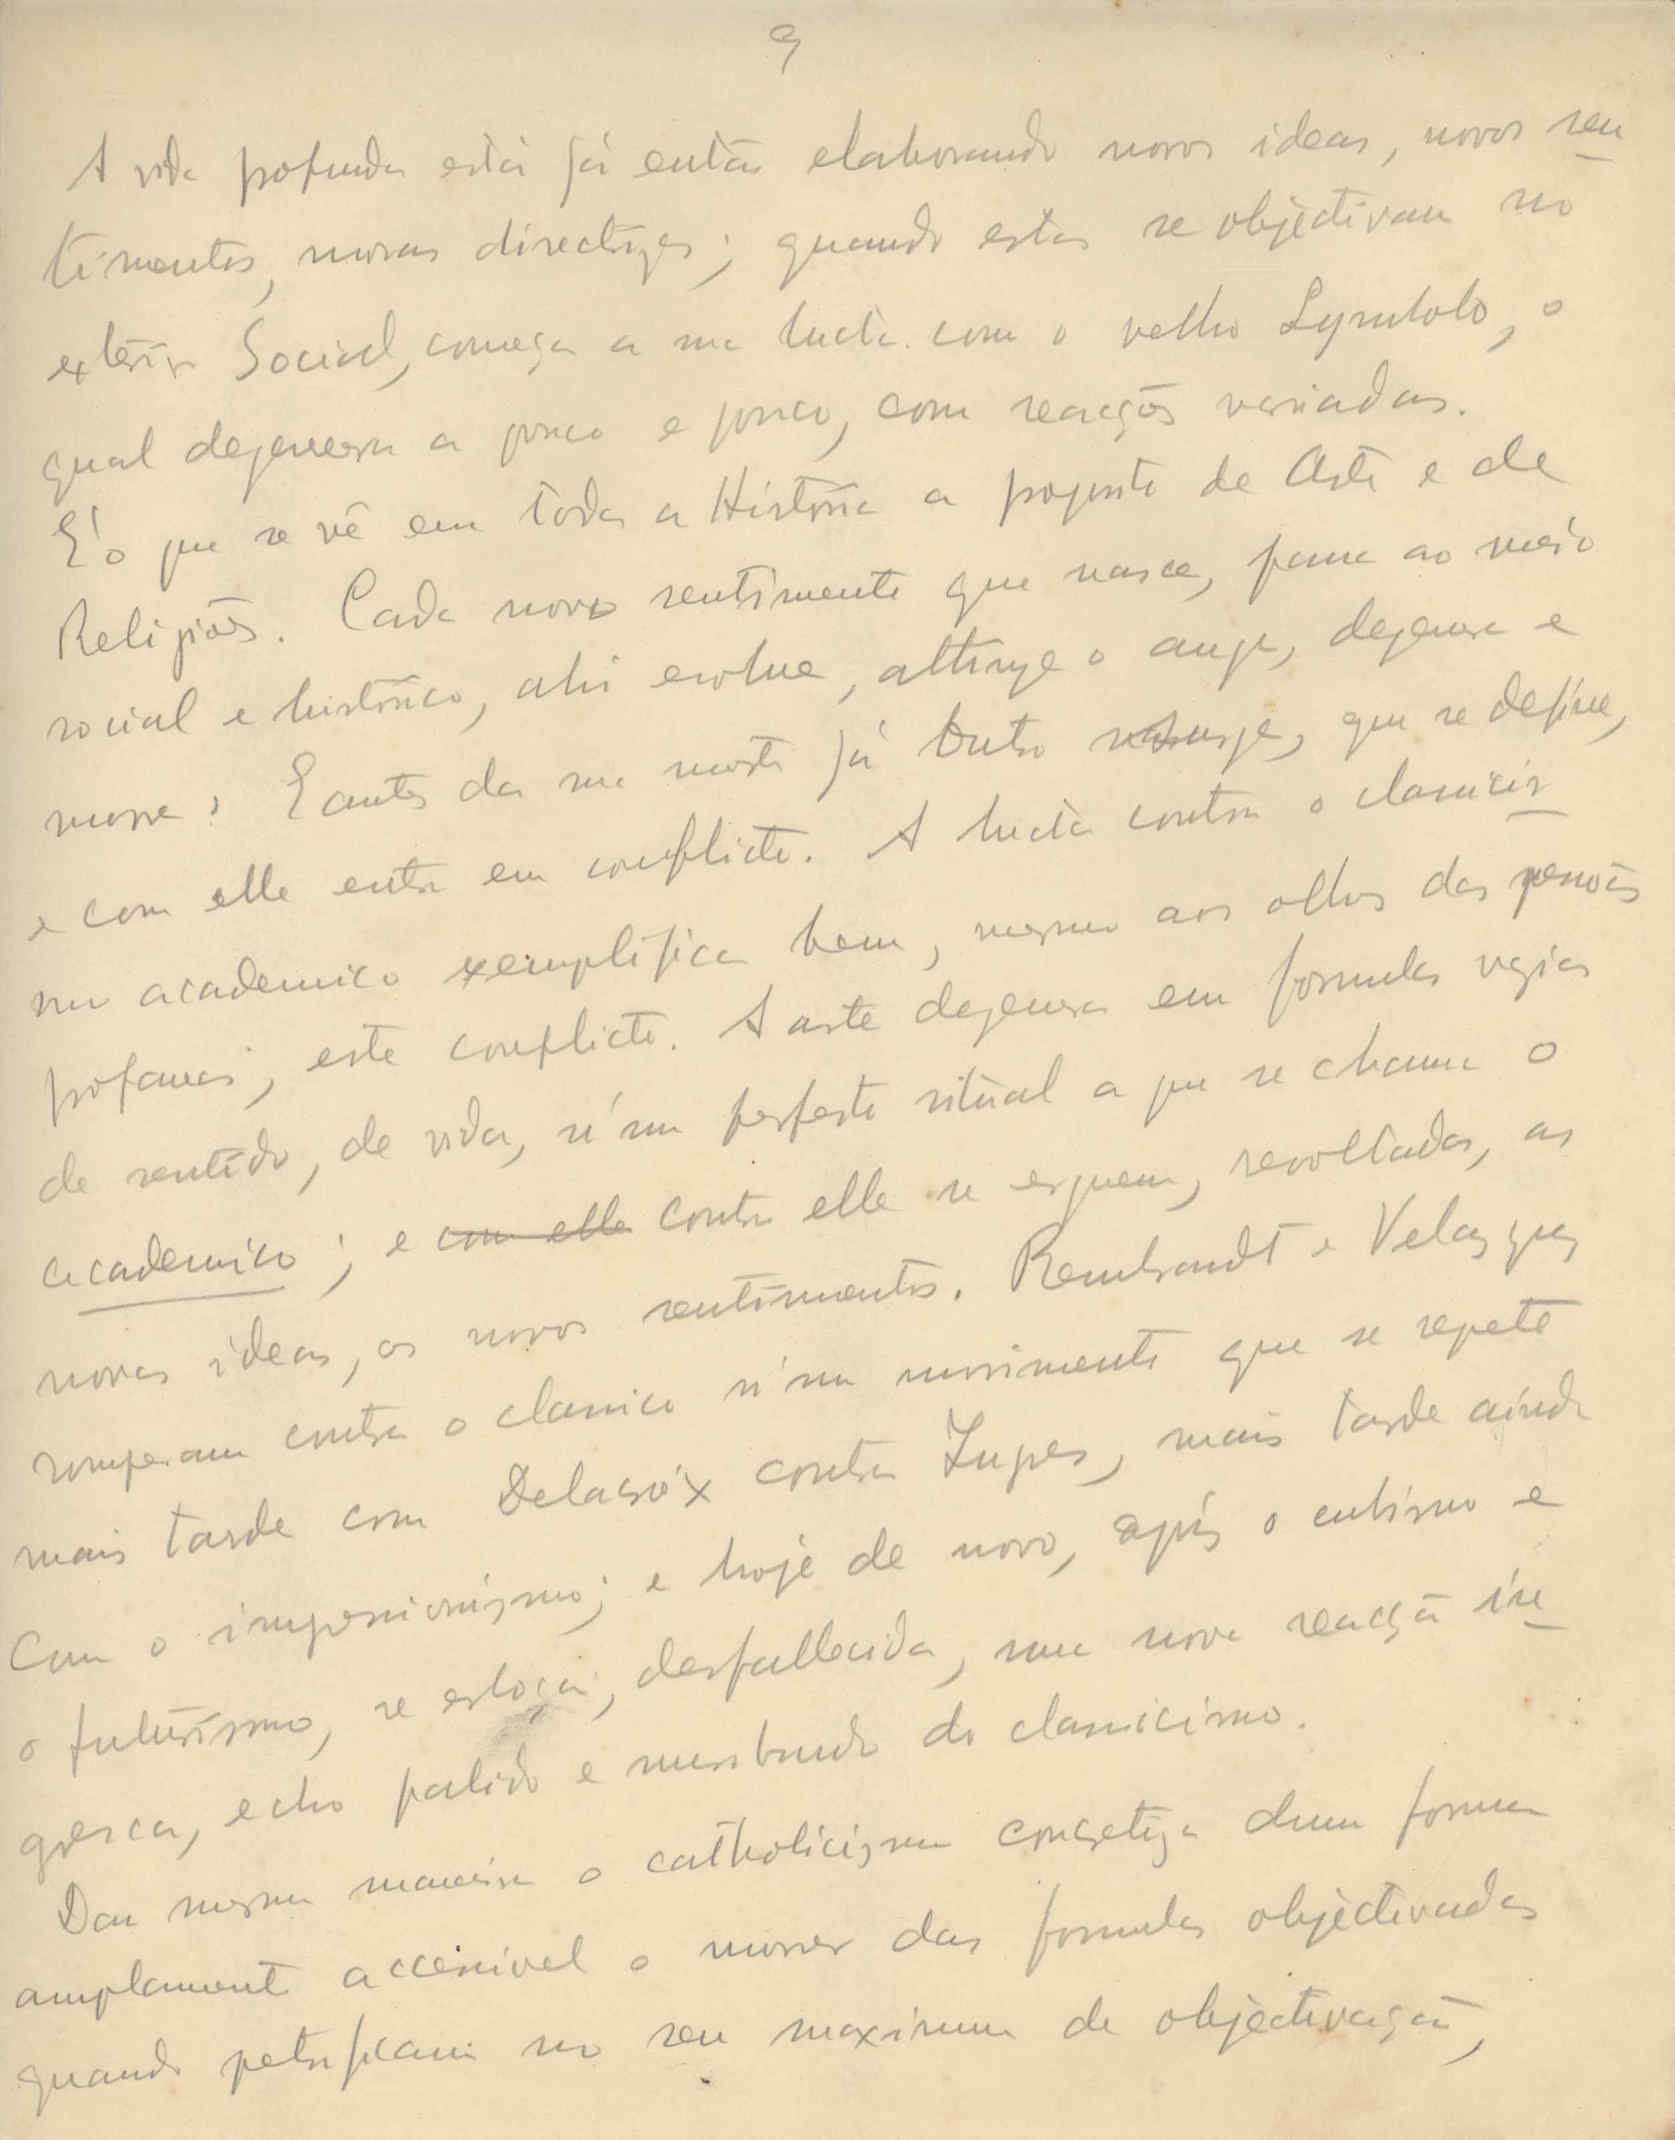 9
A vida profunda está já então elaborando novas ideas, novos sen
timentos, novas directrizes; quando estas se objectivam no
exterior Social, começa a sua lucta com o velho Symbolo, o
qual degenera a pouco e pouco, com reacções variadas.
E' o que se vê em toda a História a proposito de Arte e de
Religiões. Cada novo sentimento que nasce, passa ao meio
social e histórico, ahi evolue, attinge o auge, degenera e
morre: E antes da sua morte já outro surge, que se define,
e com elle entra em conflicto. A lucta contra o classicis
mo academico exemplifica bem, mesmo aos olhos das pessoas
profanas, este conflicto. A arte degenera em formulas vazias
de sentido, de vida, n'um perfeito ritual a que se chama o
academico; e com elle contra elle se erguem, revoltadas, as
novas ideas, os novos sentimentos. Rembrandt e Velasquez
romperam contra o classico n'um movimento que se repete
mais tarde com Delacroix contra Ingres, mais tarde ainda
Com o impressionismo; e hoje de novo, após o cubismo e
o futurismo, se esboça, desfallecida, uma nova reacção in
gresca, echo palido e moribundo do classicismo.
Da mesma maneira o catholicismo concretiza duma forma
amplamente accessivel o morrer das formulas objectivadas
quando petrificam no seu maximum de objectivação,